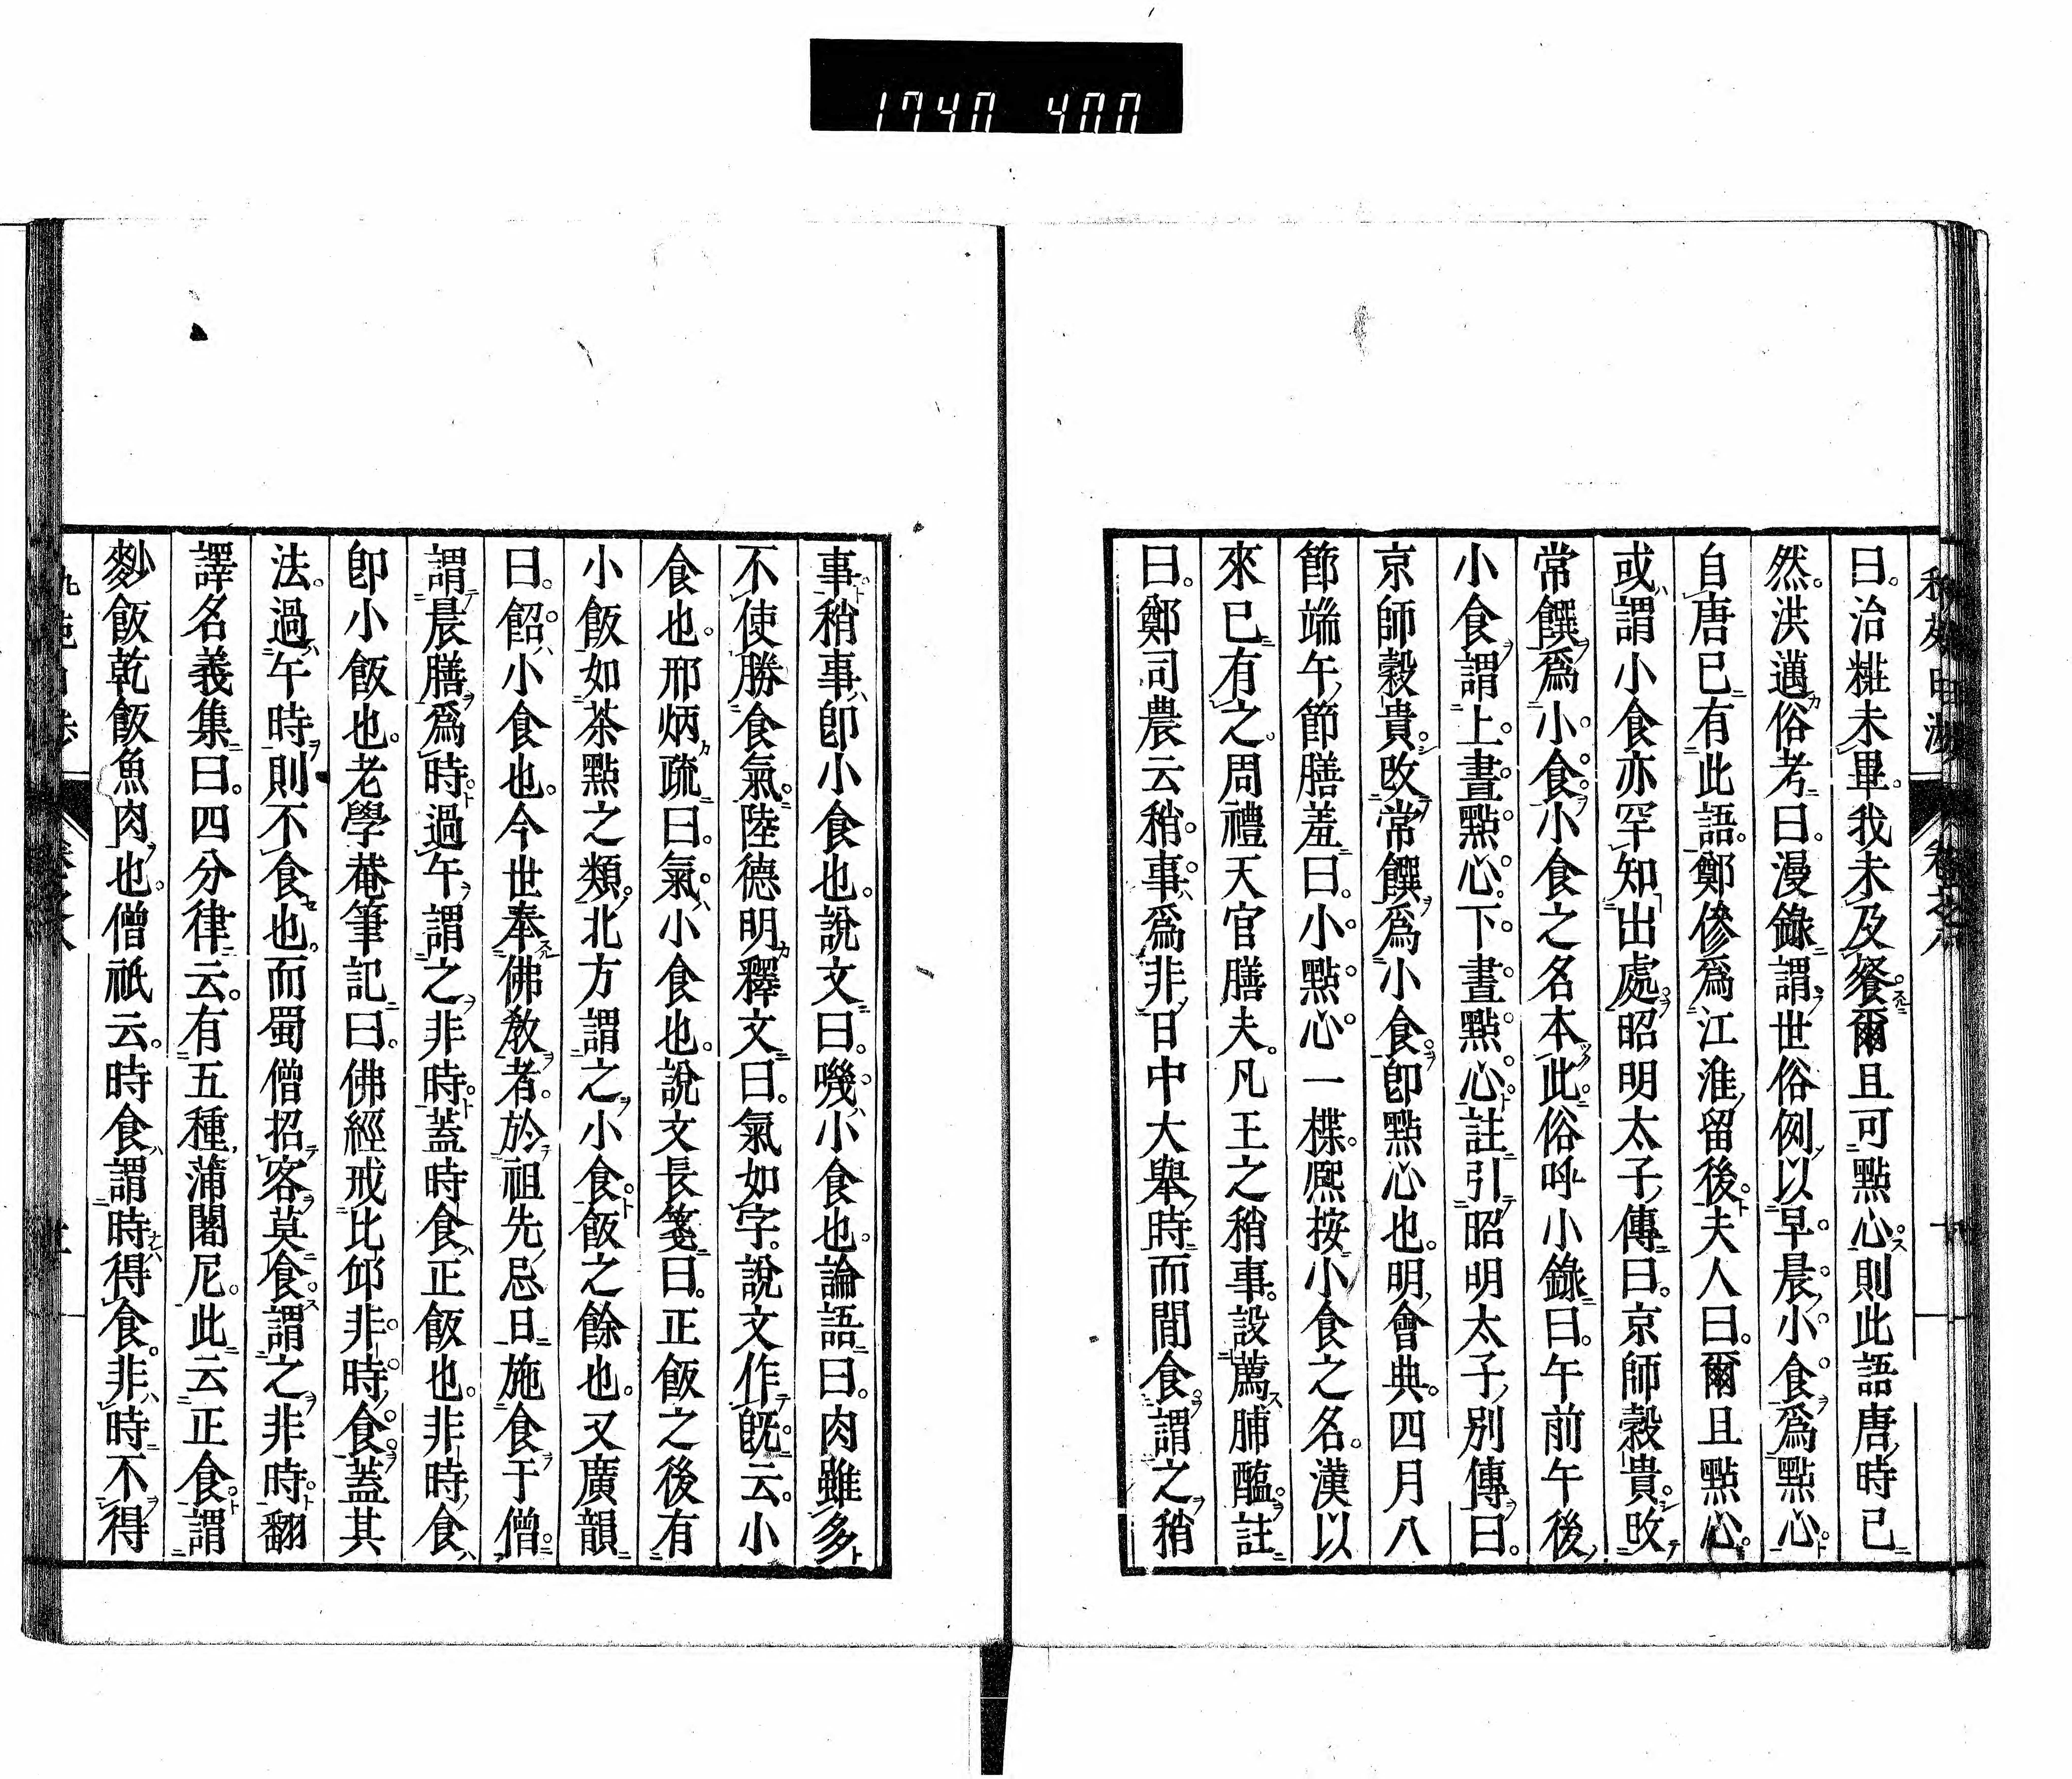 1740 400
曰。治糚未畢。我未及餐。爾且可點心。則此語唐時已
然。洪邁俗考曰。漫錄謂世俗例以早晨小食爲點心。
自唐已有此語。鄭傪爲江淮留後。夫人曰。爾且點心。
或謂小食亦罕知出處。昭明太子傳曰。京師穀貴。改
常饌爲小食。小食之名本此。俗呼小錄曰。午前午後
小食謂上晝點心。下晝點心。註引昭明太子別傳曰。
京師穀貴。改常饌爲小食。卽點心也。明會典。四月八
節端午節膳羞曰。小點心一楪。熈按小食之名。漢以
來已有之。周禮天官膳夫。凡王之稍事。設薦脯醢。註
曰。鄭司農云稍事爲非日中大舉時而閒食。謂之稍
事。稍事卽小食也。說文曰。嘰小食也。論語曰。肉雖多
不使勝食氣。陸德明釋文曰。氣如字。說文作旣。云。小
食也。邢炳疏曰。氣小食也。說文長箋曰。正飯之後有
小飯如茶點之類。北方謂之小食。飯之餘也。又廣韻
曰。䬰小食也。今世奉佛敎者。於祖先忌日施食于僧。
謂晨膳爲時。過午謂之非時。蓋時食正飯也。非時食
卽小飯也。老學菴筆記曰。佛經戒比邱非時食。蓋其
法。過午時則不食也。而蜀僧招客莫食。謂之非時。翻
譯名義集曰。四分律云。有五種蒲闍尼。此云正食。謂
麨飯乾飯魚肉也。僧祇云。時食謂時得食。非時不得